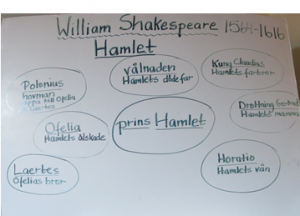 William Shakespeare 1564-1616
Hamlet
Polonius
hovman
pappa till Ofelia
Laertes
vålnaden
Hamlets döde far
Kung Claudius
Hamlets farbror
Drottning
Hamlets mamma
Ofelia
Hamlets älskade
prins Hamlet
Laertes
Ofelias bror
Horatio
Hamlets vän